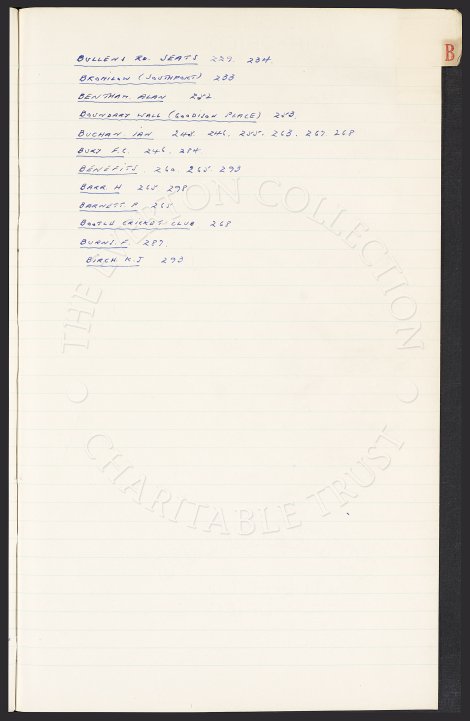 B
BULLENS RD. SEATS 229. 234.
BROMILOW (SOUTHPORT) 233
BENTHAM. ALAN 252
BOUNDARY WALL (GOODISON PLACE) 253.
BUCHAN IAN 245. 246. 255. 263. 267. 268
BURY F.C. 246. 284
BENEFITS. 260. 265. 293
BARR H 265. 298.
BARNETT P. 265.
BOOTLE CRICKET CLUB 268
BURNS. F. 287.
BIRCH K.J 293
THE EVERTON COLLECTION
CHARITABLE TRUST